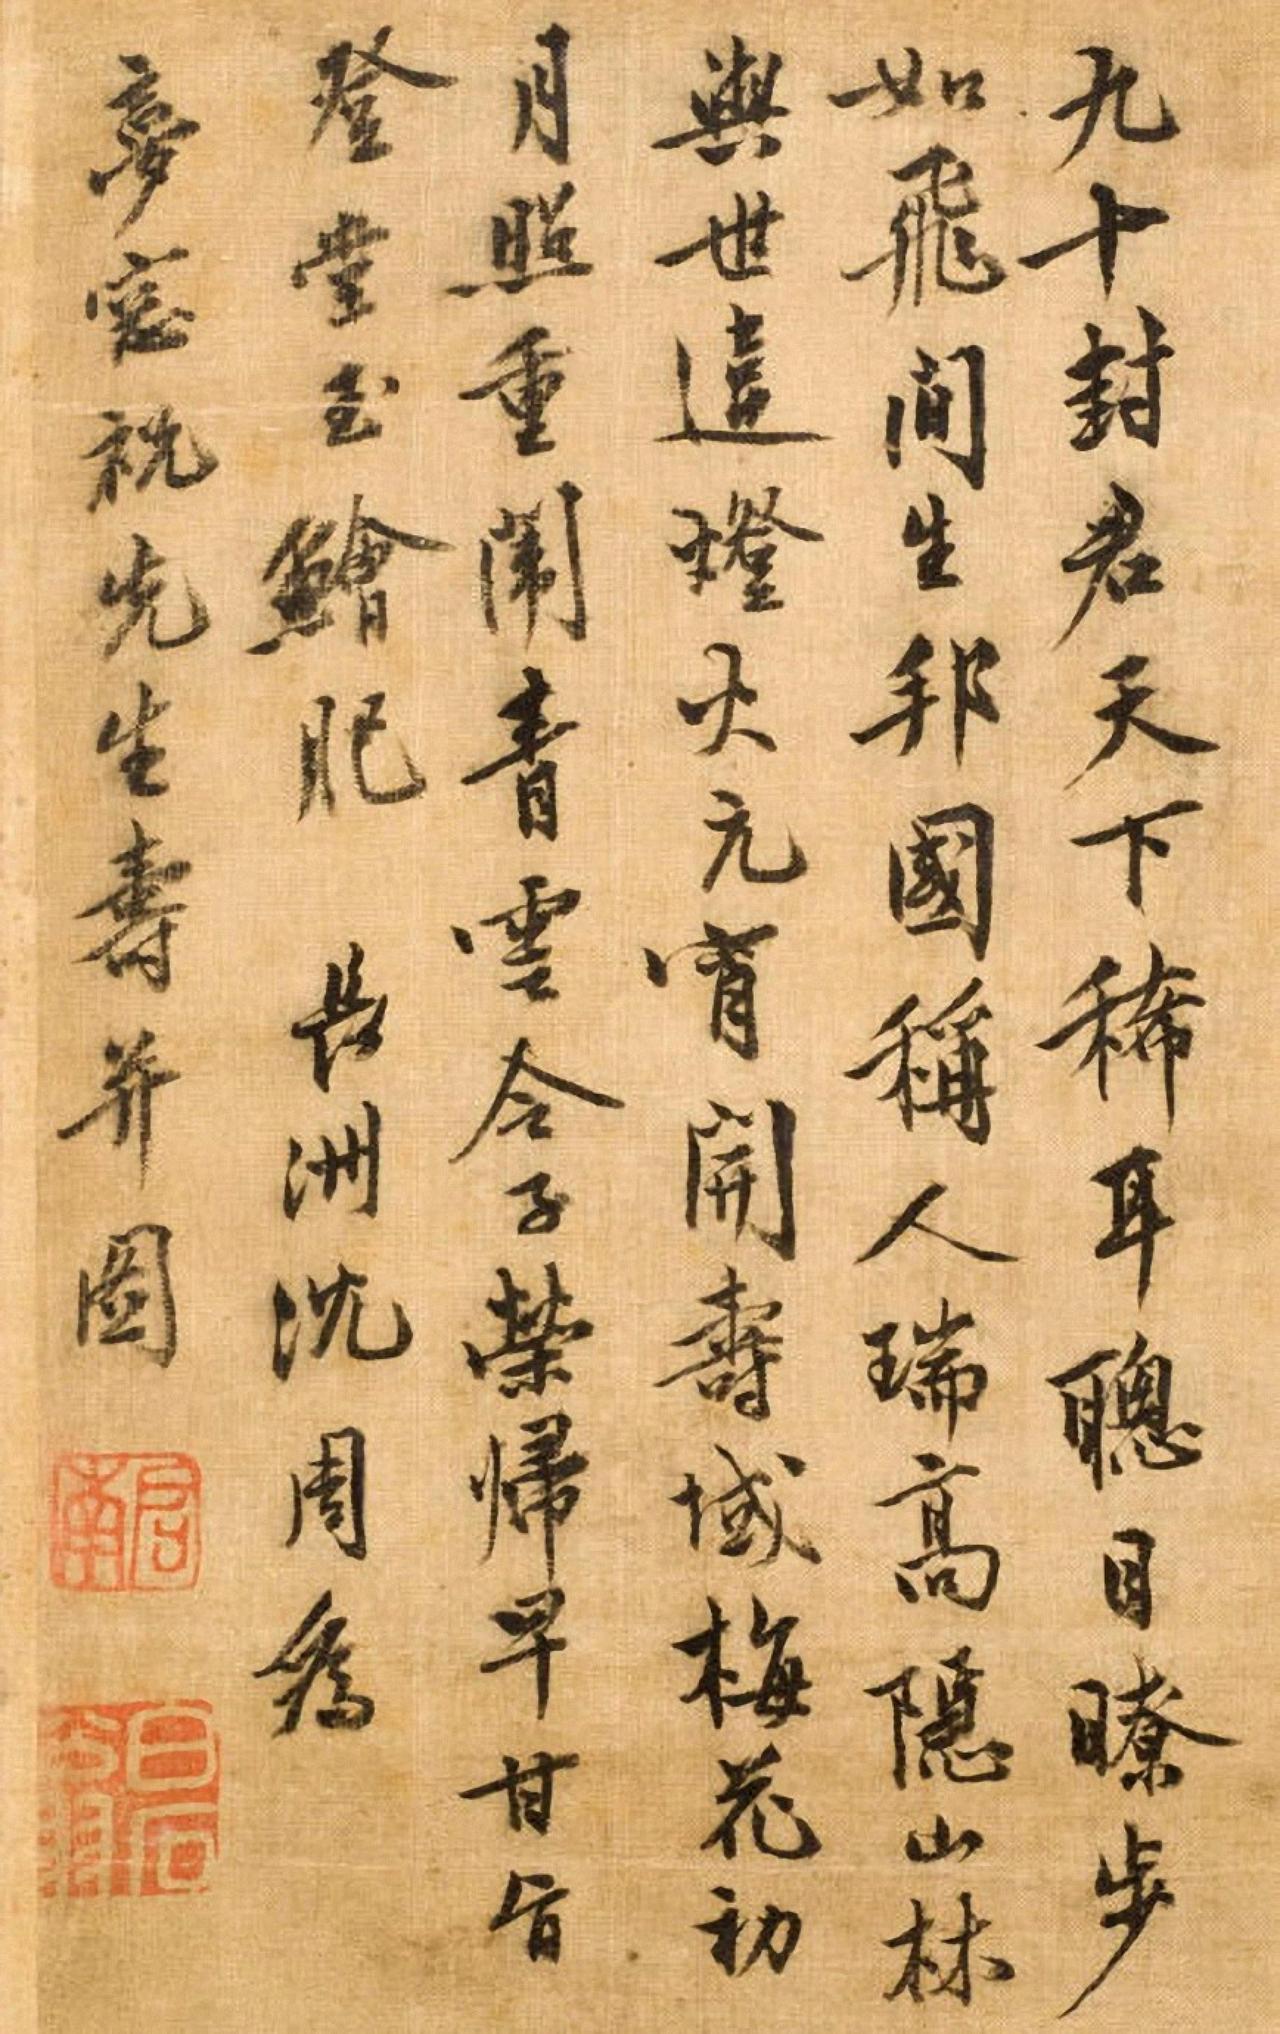 九十封君天下稀耳聰目瞭步
如飛間生邦國稱人瑞高隱山林
與世遠燈火元宵開壽域梅花初
月照重闈青雲令子榮歸早甘旨
登堂玉鱠肥 長洲沈周為
夢窓祝先生壽并圖
啟南
白石翁